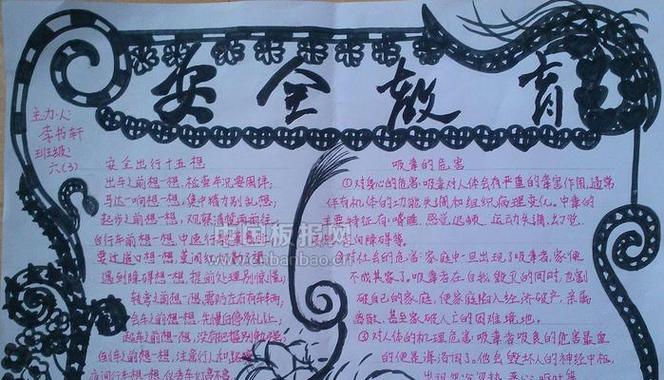 安全教育
主力人:
李书轩
班级:
六(3)
安全出行十五想
出车之前想一想,检查车况要周详;
马达一响想一想,集中精力别乱想;
起步之前想一想,观察清楚再前往;
自行车前想一想,中速行驶莫着忙;
要过道口想一想,莫闯红灯勤了望;
遇到障碍想一想,提前处理别惊慌;
转弯之前想一想,需防左右有车辆;
会车之前想一想,先慢后停多礼让;
超车之前想一想,没有把握别勉强;
倒车之前想一想,注意行人和
夜间行车想一想,仪表车灯
吸毒的危害
①对身心的危害:吸毒对人体会有严重的毒害作用,通常
伴有机体的功能失调和组织病理变化。中毒的
主要特征有:嗜睡、感觉迟钝、运动失调、幻觉、
定向障碍等。
对社会的危害:家庭中一旦出现了吸毒者,家便
不成其家了。吸毒者在自我毁灭的同时,也害
破自己的家庭,使家庭陷入经济破产、亲属
离散、甚至家破人亡的困难境地。
③对人体的机理危害:吸毒者吸食的危害最重
的便是海洛因了。他会毁坏人的神经中枢,
中国板报网